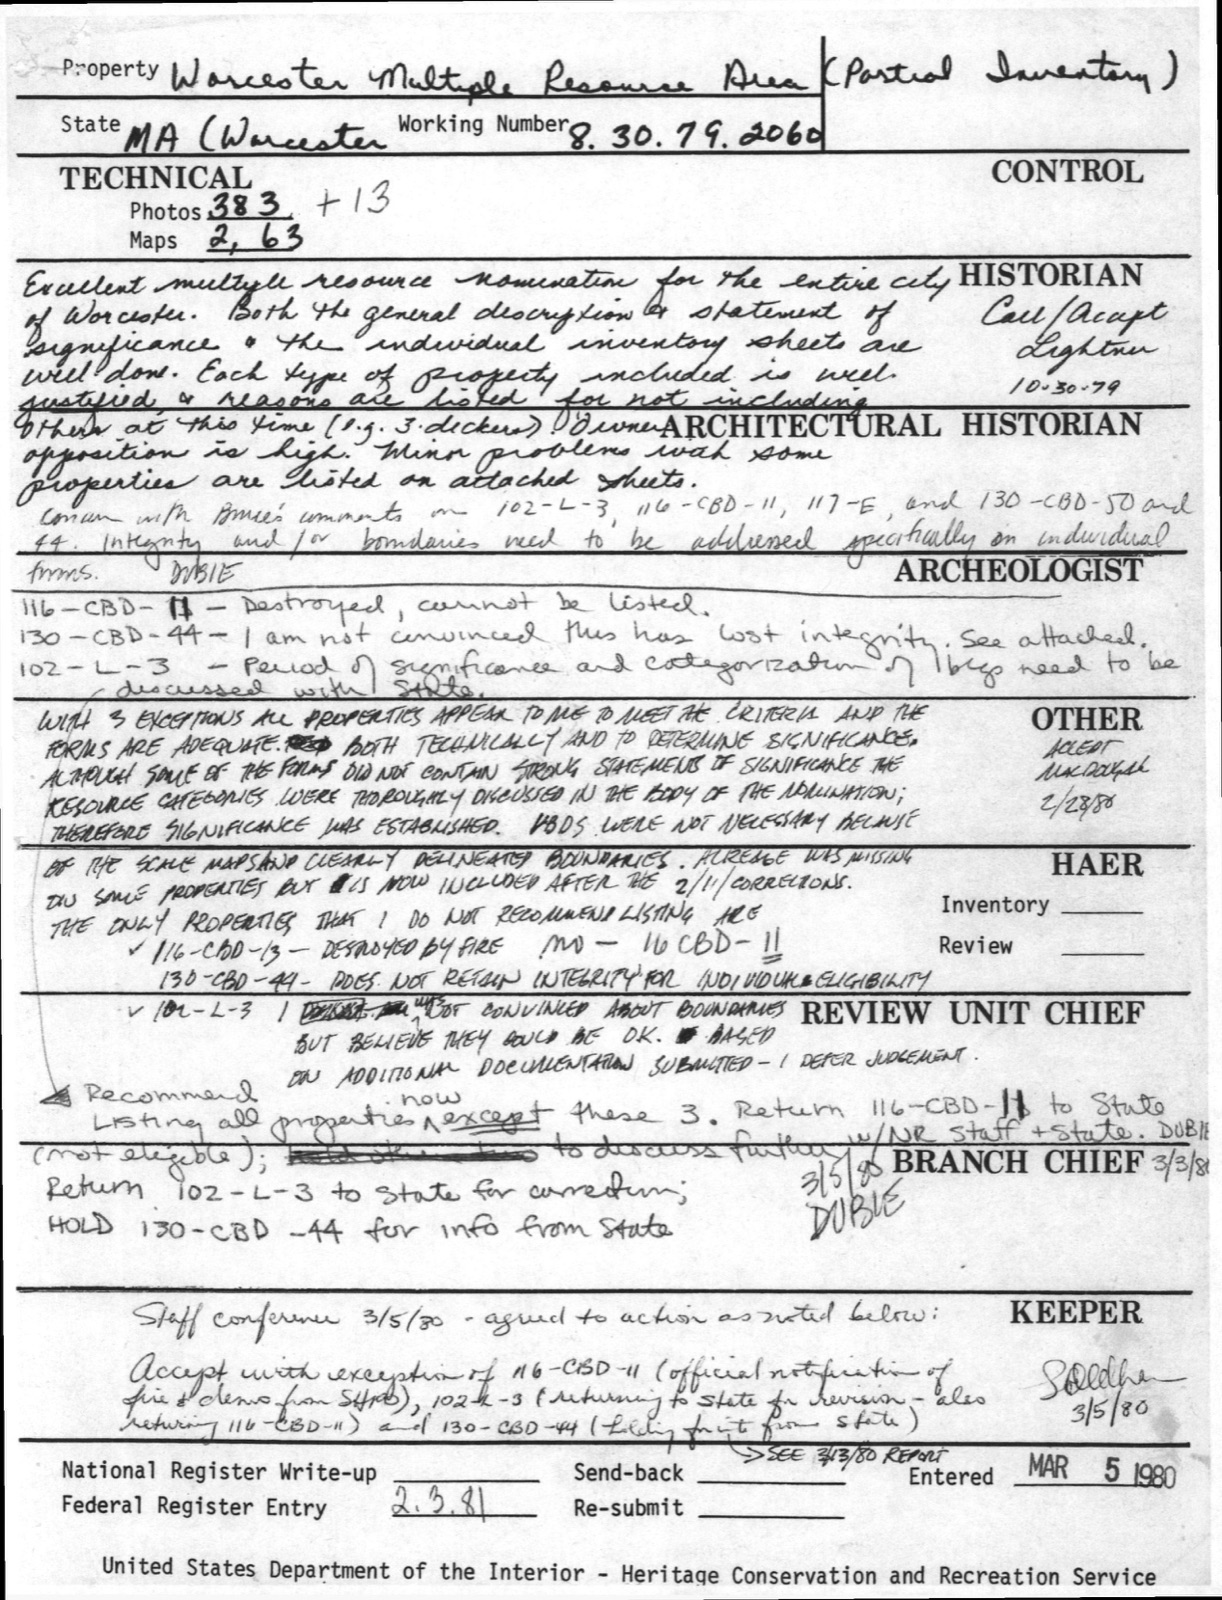 Property Worcester Multiple Resource Area (Partial Inventory)
State MA (Worcester Working Number 8.30.79.2060
TECHNICAL CONTROL
Photos 383 + 13
Maps 2, 63
HISTORIAN
Excellent multiple resource nomination for the entire city
of Worcester. Both the general description & statement of
significance & the individual inventory sheets are
well done. Each type of property included is well
justified, & reasons are listed for not including
others at this time (e.g. 3-deckers). Owner
opposition is high. Minor problems with some
properties are listed on attached sheets.
Call/Accept
Lightner
10-30-79
ARCHITECTURAL HISTORIAN
concur with Bruce's comments on 102-L-3, 116-CBD-11, 117-E, and 130-CBD-50 and
44. Integrity and/or boundaries need to be addressed specifically on individual
forms. DUBIE
ARCHEOLOGIST
116-CBD-11 - Destroyed, cannot be listed.
130-CBD-44 - I am not convinced this has lost integrity. See attached.
102-L-3 - Period of significance and categorization of bldgs need to be
discussed with State.
OTHER
WITH 3 EXCEPTIONS ALL PROPERTIES APPEAR TO ME TO MEET THE CRITERIA AND THE
FORMS ARE ADEQUATE. BOTH TECHNICALLY AND TO DETERMINE SIGNIFICANCE.
ALTHOUGH SOME OF THE FORMS DID NOT CONTAIN STRONG STATEMENTS OF SIGNIFICANCE THE
RESOURCE CATEGORIES WERE THOROUGHLY DISCUSSED IN THE BODY OF THE NOMINATION;
THEREFORE SIGNIFICANCE WAS ESTABLISHED. VBDS WERE NOT NECESSARY BECAUSE
OF THE SCALE MAPS AND CLEARLY DELINEATED BOUNDARIES. ACREAGE WAS MISSING
ON SOME PROPERTIES BUT IS NOW INCLUDED AFTER THE 2/11/ CORRECTIONS.
THE ONLY PROPERTIES THAT I DO NOT RECOMMEND LISTING ARE
✓ 116-CBD-13 - DESTROYED BY FIRE NO - 16 CBD-11
130-CBD-44 - DOES NOT RETAIN INTEGRITY FOR INDIVIDUAL ELIGIBILITY
✓ 102-L-3 I WAS NOT CONVINCED ABOUT BOUNDARIES
BUT BELIEVE THEY COULD BE OK. BASED
ON ADDITIONAL DOCUMENTATION SUBMITTED - I DEFER JUDGEMENT.
ACCEPT
MACDOUGAL
2/28/80
HAER
Inventory
Review
REVIEW UNIT CHIEF
Recommend
Listing all properties now except these 3. Return 116-CBD-11 to State
(not eligible); to discuss further w/NR Staff + State. DUBIE
3/3/80
BRANCH CHIEF
Return 102-L-3 to State for correction;
HOLD 130-CBD-44 for info from State
3/5/80
DUBIE
KEEPER
Staff conference 3/5/80 - agreed to action as noted below:
Accept with exception of 116-CBD-11 (official notification of
fire & demo from SHPO), 102-L-3 (returning to State for revision - also
returning 116-CBD-11) and 130-CBD-44 (holding for info from State)
→ SEE 3/13/80 REPORT
3/5/80
National Register Write-up Send-back Entered MAR 5 1980
Federal Register Entry 2.3.81 Re-submit
United States Department of the Interior - Heritage Conservation and Recreation Service